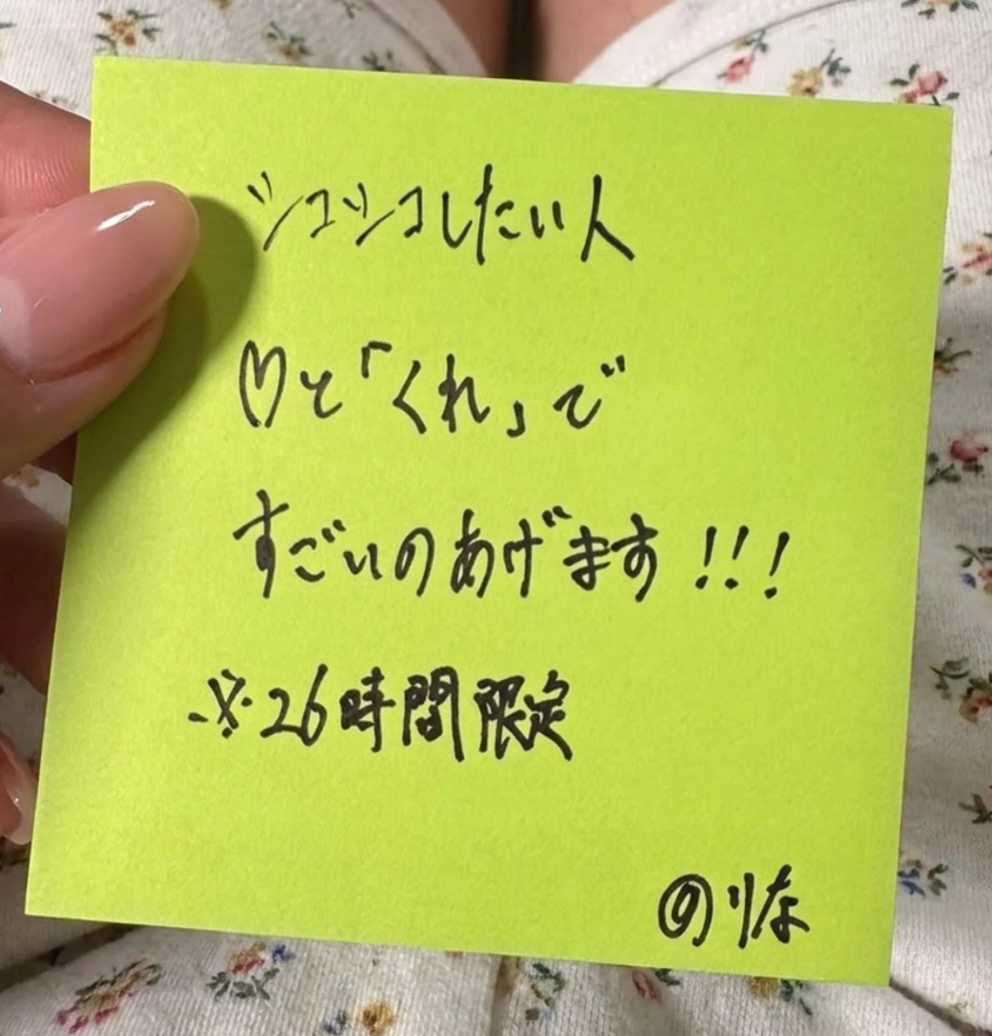 シコシコしたい人
♡と「くれ」で
すごいのあげます!!!
※26時間限定
のりな